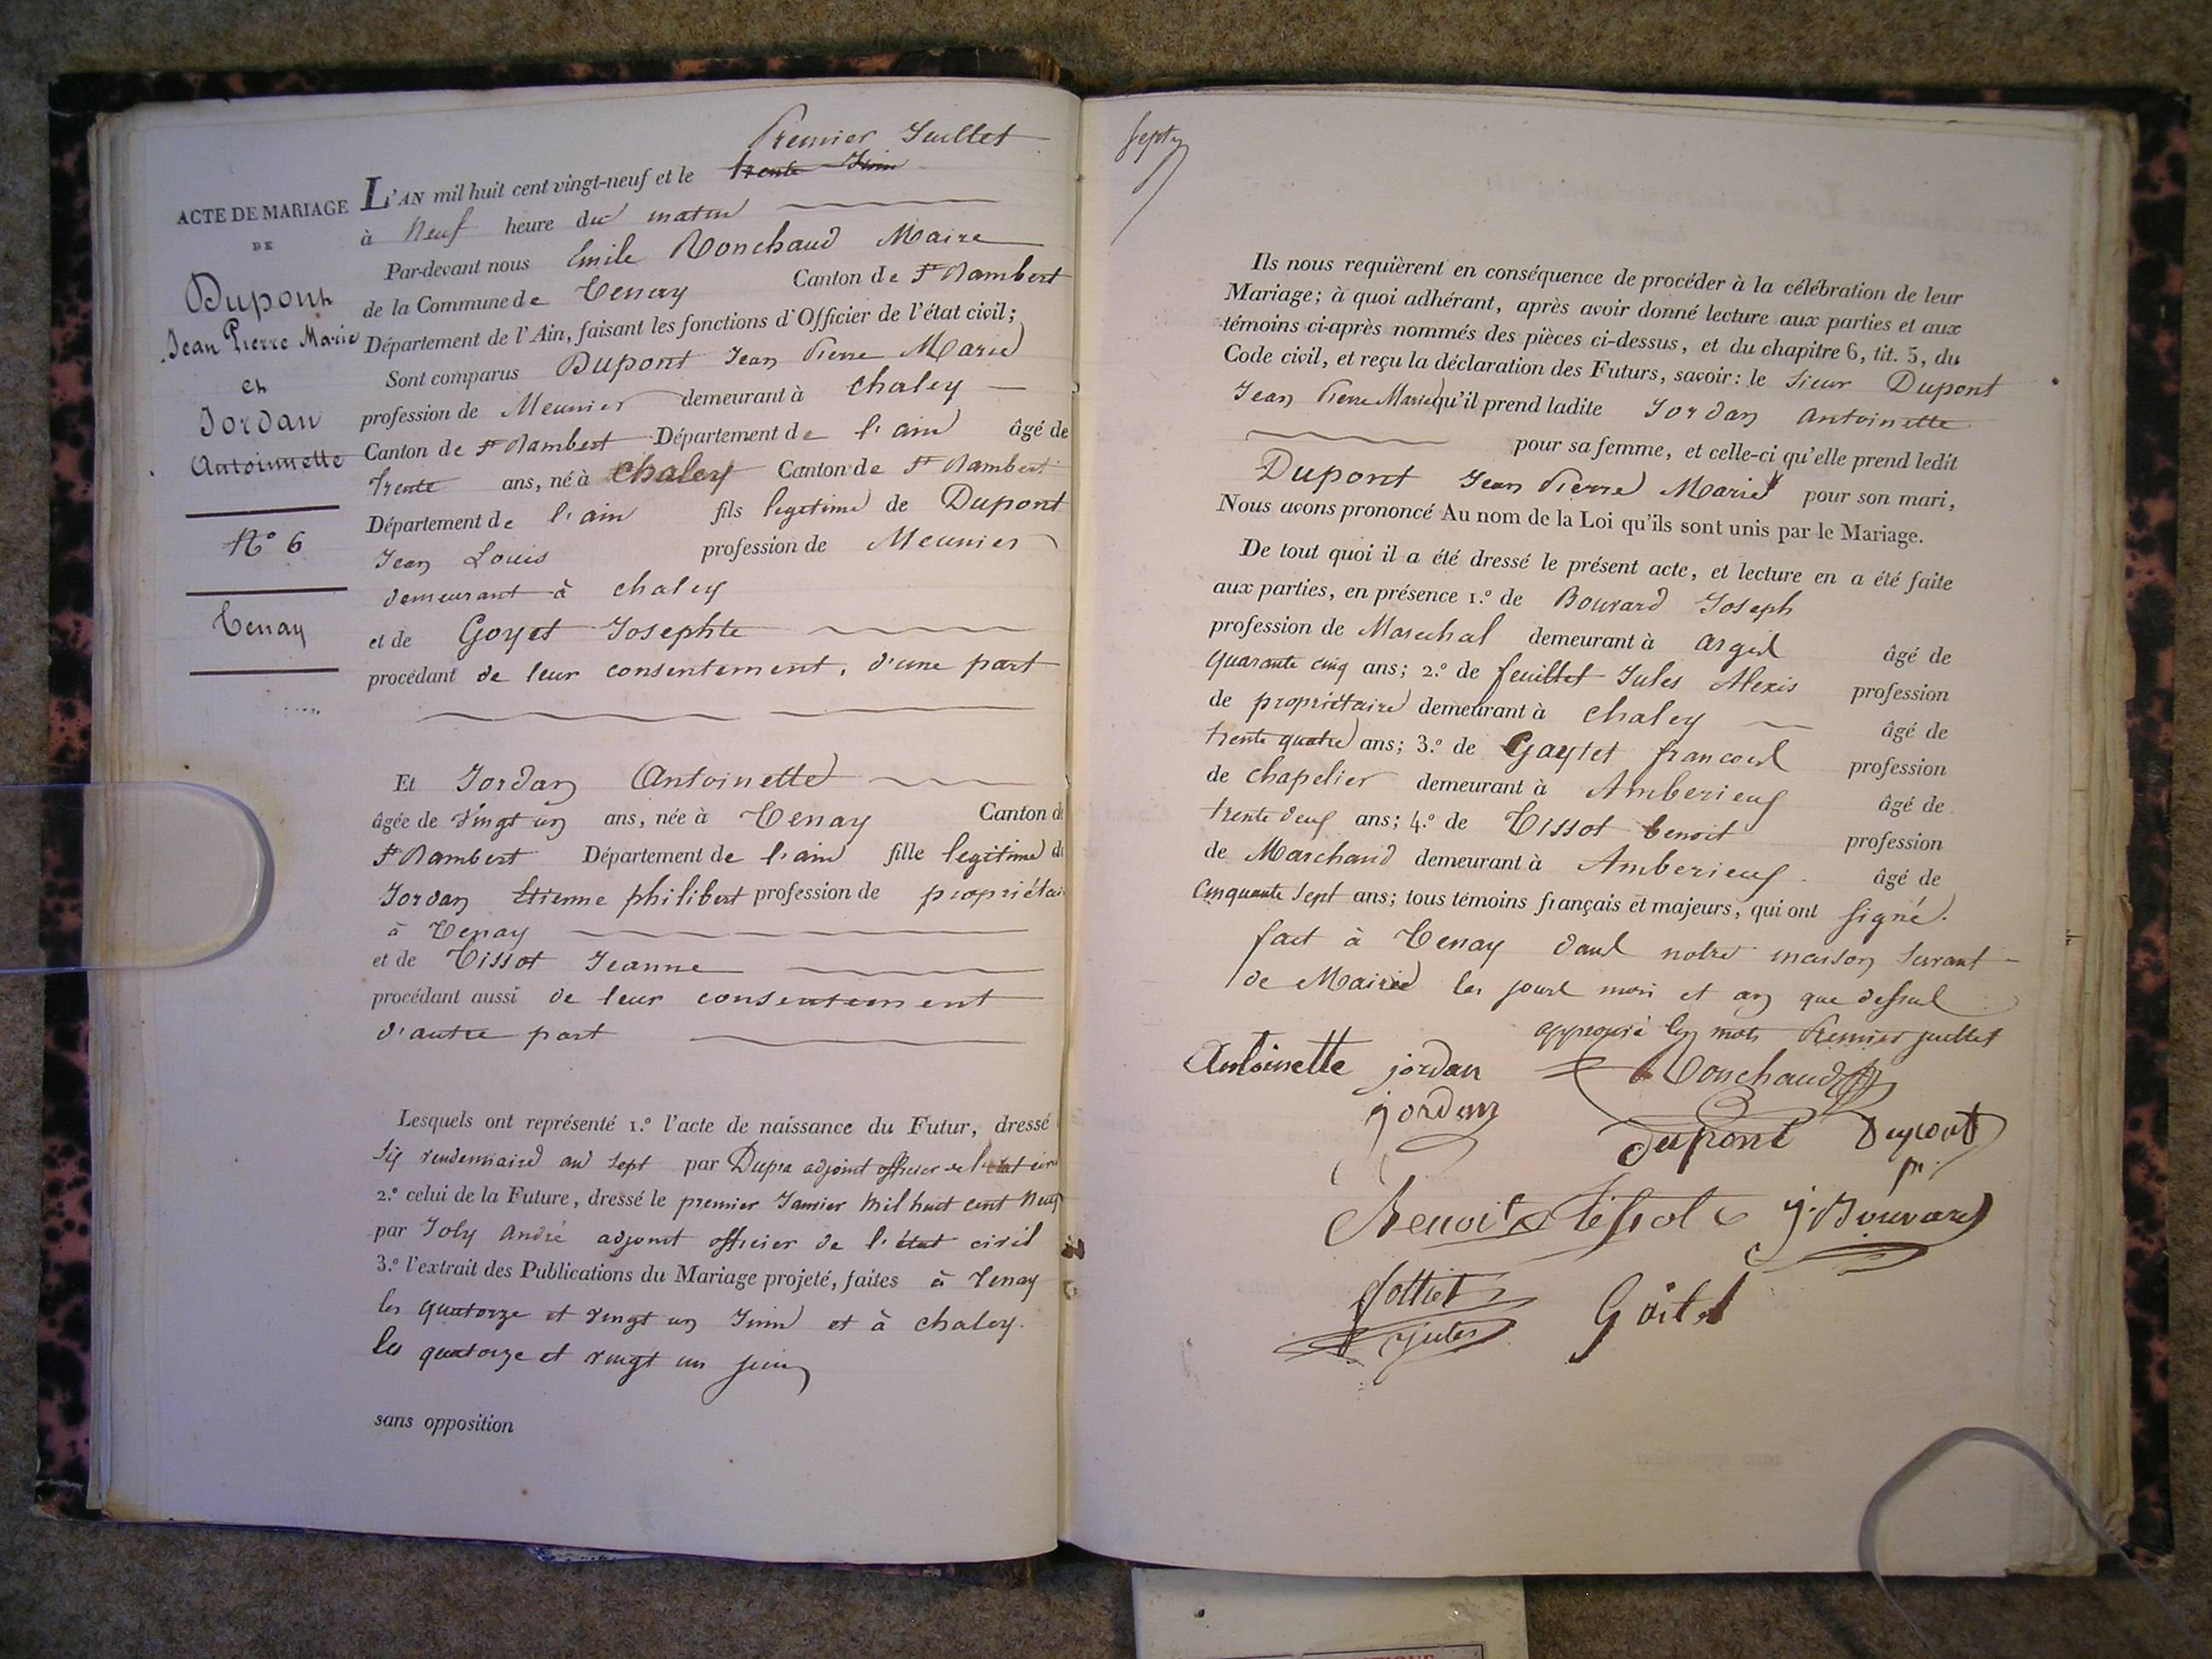 ACTE DE MARIAGE
DE
Dupont
Jean Pierre Marie
et
Jordan
Antoinette
N° 6
Tenay
Premier Juillet
L'AN mil huit cent vingt-neuf et le trente Juin
à Neuf heure du matin
Par-devant nous Emile Ronchaud Maire
de la Commune de Tenay Canton de St Rambert
Département de l'Ain, faisant les fonctions d'Officier de l'état civil;
Sont comparus Dupont Jean Pierre Marie
profession de Meunier demeurant à Chaley
Canton de St Rambert Département de l'ain âgé de
trente ans, né à Chaley Canton de St Rambert
Département de l'ain fils legitime de Dupont
Jean Louis profession de Meunier
demeurant à chaley
et de Goyet Josephte
procédant de leur consentement, d'une part
Et Jordan Antoinette
âgée de vingt un ans, née à Tenay Canton de
St Rambert Département de l'ain fille legitime de
Jordan Etienne philibert profession de propriétai
à Tenay
et de Tissot Jeanne
procédant aussi de leur consentement
d'autre part
Lesquels ont représenté 1.° l'acte de naissance du Futur, dressé
Six vendemiaire an sept par Dupra adjoint officier de l'état civil
2.° celui de la Future, dressé le premier Janvier mil huit cent Neuf
par Joly André adjoint officier de l'état civil
3.° l'extrait des Publications du Mariage projeté, faites à Tenay
les quatorze et vingt un Juin et à chaley.
les quatorze et vingt un juin
sans opposition
sept
Ils nous requièrent en conséquence de procéder à la célébration de leur
Mariage; à quoi adhérant, après avoir donné lecture aux parties et aux
témoins ci-après nommés des pièces ci-dessus, et du chapitre 6, tit. 5, du
Code civil, et reçu la déclaration des Futurs, savoir: le Sieur Dupont
Jean Pierre Marie qu'il prend ladite Jordan Antoinette
pour sa femme, et celle-ci qu'elle prend ledit
Dupont Jean Pierre Marie pour son mari,
Nous avons prononcé Au nom de la Loi qu'ils sont unis par le Mariage.
De tout quoi il a été dressé le présent acte, et lecture en a été faite
aux parties, en présence 1.° de Bouvard Joseph
profession de Marechal demeurant à argis âgé de
quarante cinq ans; 2.° de feuillet Jules Alexis profession
de propriétaire demeurant à chaley âgé de
trente quatre ans; 3.° de Gaytet francois profession
de chapelier demeurant à Amberieux âgé de
trente deux ans; 4.° de Tissot benoit profession
de Marchand demeurant à Amberieux. âgé de
Cinquante sept ans; tous témoins français et majeurs, qui ont signé.
fait à Tenay dans notre maison servant
de Mairie les jours mois et an que dessus
approuvé les mots Premier juillet
Antoinette jordan Ronchaud
jordan dupont Dupont
Benoit tissot j. Bouvard
jottiet
jules